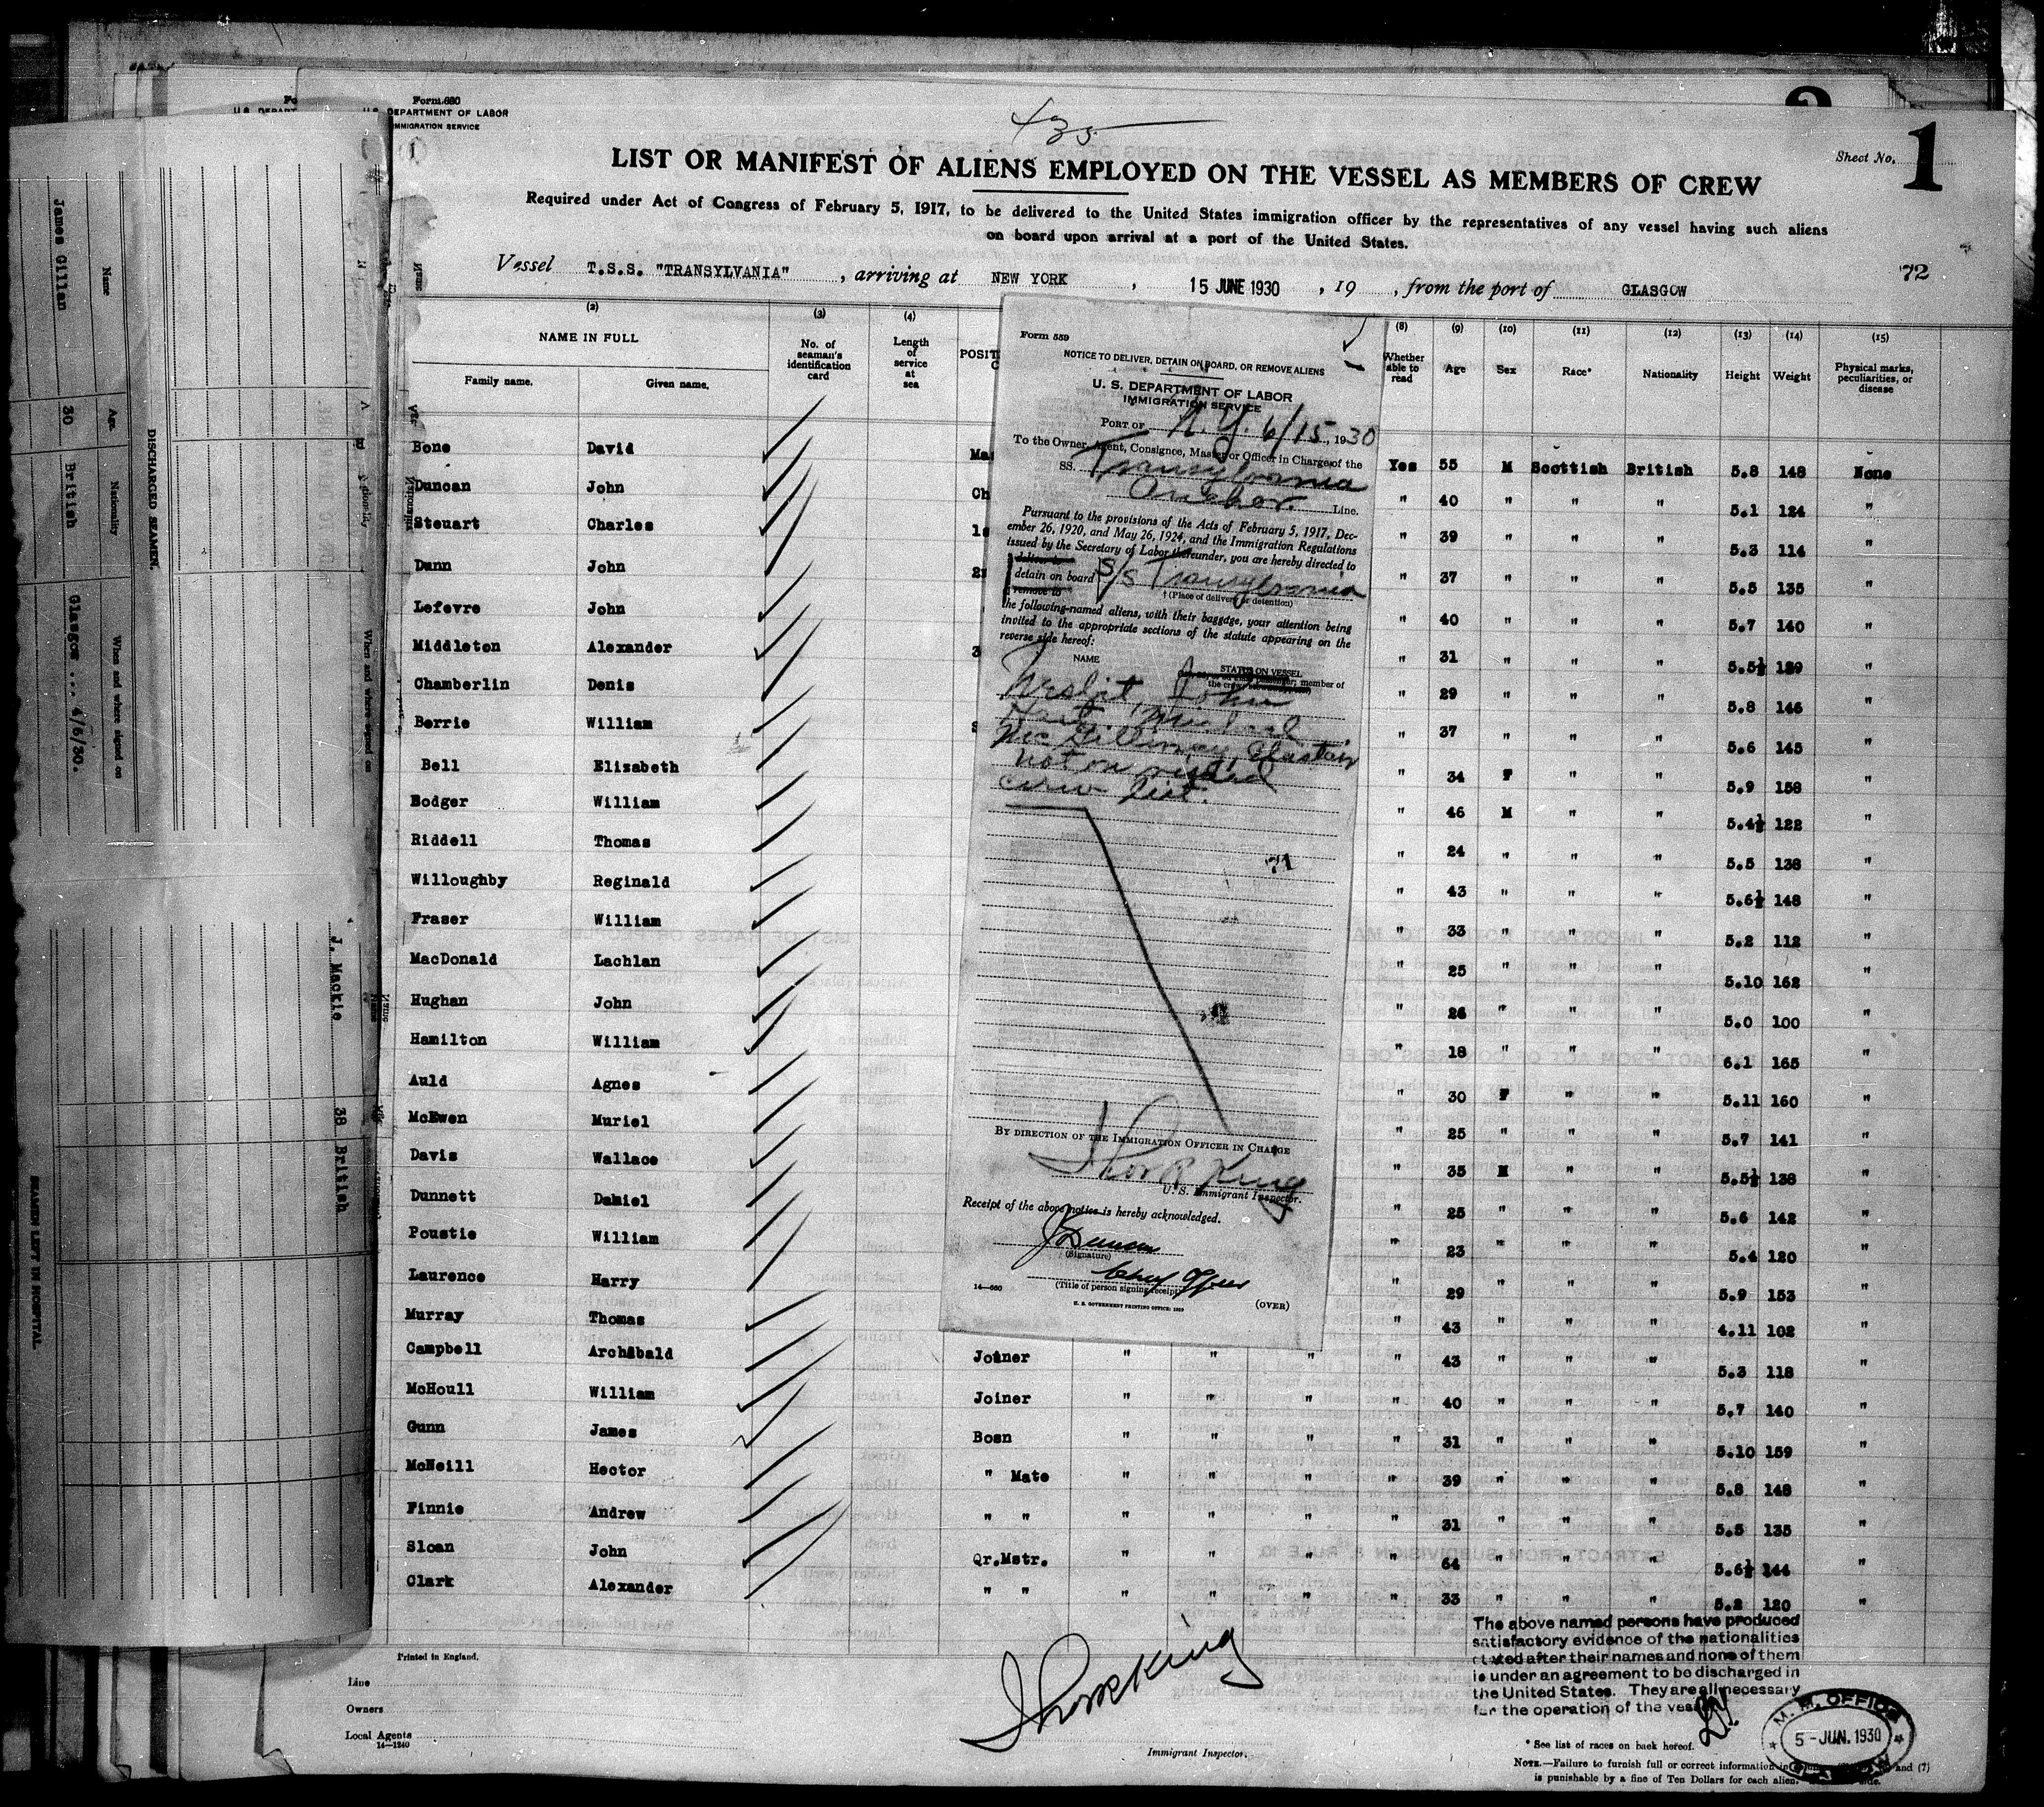 Form 680
U. S. DEPARTMENT OF LABOR
IMMIGRATION SERVICE
435
Sheet No. 1
LIST OR MANIFEST OF ALIENS EMPLOYED ON THE VESSEL AS MEMBERS OF CREW
Required under Act of Congress of February 5, 1917, to be delivered to the United States immigration officer by the representatives of any vessel having such aliens
on board upon arrival at a port of the United States.
Vessel T.S.S. "TRANSYLVANIA", arriving at NEW YORK, 15 JUNE 1930, 19 , from the port of GLASGOW
72
(2) (3) (4) (8) (9) (10) (11) (12) (13) (14) (15)
NAME IN FULL
Family name. Given name. No. of seaman's identification card Length of service at sea POSIT Whether able to read Age Sex Race* Nationality Height Weight Physical marks, peculiarities, or disease
Bone David Mas Yes 55 M Scottish British 5.8 148 None
Duncan John Ch " 40 " " " 5.1 124 "
Steuart Charles 1s " 39 " " " 5.3 114 "
Dunn John " 37 " " " 5.5 135 "
Lefevre John " 40 " " " 5.7 140 "
Middleton Alexander 3 " 31 " " " 5.5½ 129 "
Chamberlin Denis " 29 " " " 5.8 146 "
Berrie William S " 37 " " " 5.6 145 "
Bell Elizabeth " 34 F " " 5.9 158 "
Bodger William " 46 M " " 5.4½ 122 "
Riddell Thomas " 24 " " " 5.5 138 "
Willoughby Reginald " 43 " " " 5.6½ 148 "
Fraser William " 33 " " " 5.2 112 "
MacDonald Lachlan " 25 " " " 5.10 162 "
Hughan John " 26 " " " 5.0 100 "
Hamilton William " 18 " " " 6.1 165 "
Auld Agnes " 30 F " " 5.11 160 "
McEwen Muriel " 25 " " " 5.7 141 "
Davis Wallace " 35 M " " 5.5½ 138 "
Dunnett Daniel " 25 " " " 5.6 142 "
Poustie William " 23 " " " 5.4 120 "
Laurence Harry " 29 " " " 5.9 153 "
Murray Thomas " 43 " " " 4.11 102 "
Campbell Archibald Joiner " " " " 43 " " " 5.3 118 "
McHoull William Joiner " " " " 40 " " " 5.7 140 "
Gunn James Bosn " " " " 31 " " " 5.10 159 "
McNeill Hector " Mate " " " " 39 " " " 5.8 148 "
Finnie Andrew " " " " " " 31 " " " 5.5 135 "
Sloan John Qr.Mstr. " " " " 64 " " " 5.6½ 144 "
Clark Alexander " " " " " " 33 " " " 5.2 120 "
Form 559
NOTICE TO DELIVER, DETAIN ON BOARD, OR REMOVE ALIENS
U. S. DEPARTMENT OF LABOR
IMMIGRATION SERVICE
PORT OF N.Y. 6/15, 1930
To the Owner, Agent, Consignee, Master or Officer in Charge of the
SS. Transylvania
Anchor Line.
Pursuant to the provisions of the Acts of February 5, 1917, Dec-
ember 26, 1920, and May 26, 1924, and the Immigration Regulations
issued by the Secretary of Labor thereunder, you are hereby directed to
deliver to
detain on board S/S Transylvania
remove to
† (Place of delivery or detention)
the following-named aliens, with their baggage, your attention being
invited to the appropriate sections of the statute appearing on the
reverse side hereof:
NAME STATUS ON VESSEL
member of
the crew
Nesbit, John
Michael
McGillivray, Alastair
not on visaed
crew list.
71
BY DIRECTION OF THE IMMIGRATION OFFICER IN CHARGE
Thor R King
U. S. Immigrant Inspector.
Receipt of the above notice is hereby acknowledged.
J Duncan
(Signature)
Chief Officer
(Title of person signing receipt)
14—680
U. S. GOVERNMENT PRINTING OFFICE: 1929
(OVER)
Name Age Nationality When and where signed on
DISCHARGED SEAMEN.
James Gillan 30 British Glasgow....4/6/30.
SEAMEN LEFT IN HOSPITAL
J. Mackie 38 British
When and where signed on
Printed in England.
Line
Owners
Local Agents
14—1240
Immigrant Inspector.
The above named persons have produced
satisfactory evidence of the nationalities
stated after their names and none of them
is under an agreement to be discharged in
the United States. They are all necessary
for the operation of the vessel
M. M. OFFICE
5 - JUN. 1930
* See list of races on back hereof.
NOTE.—Failure to furnish full or correct information in and (7)
is punishable by a fine of Ten Dollars for each alien. side.